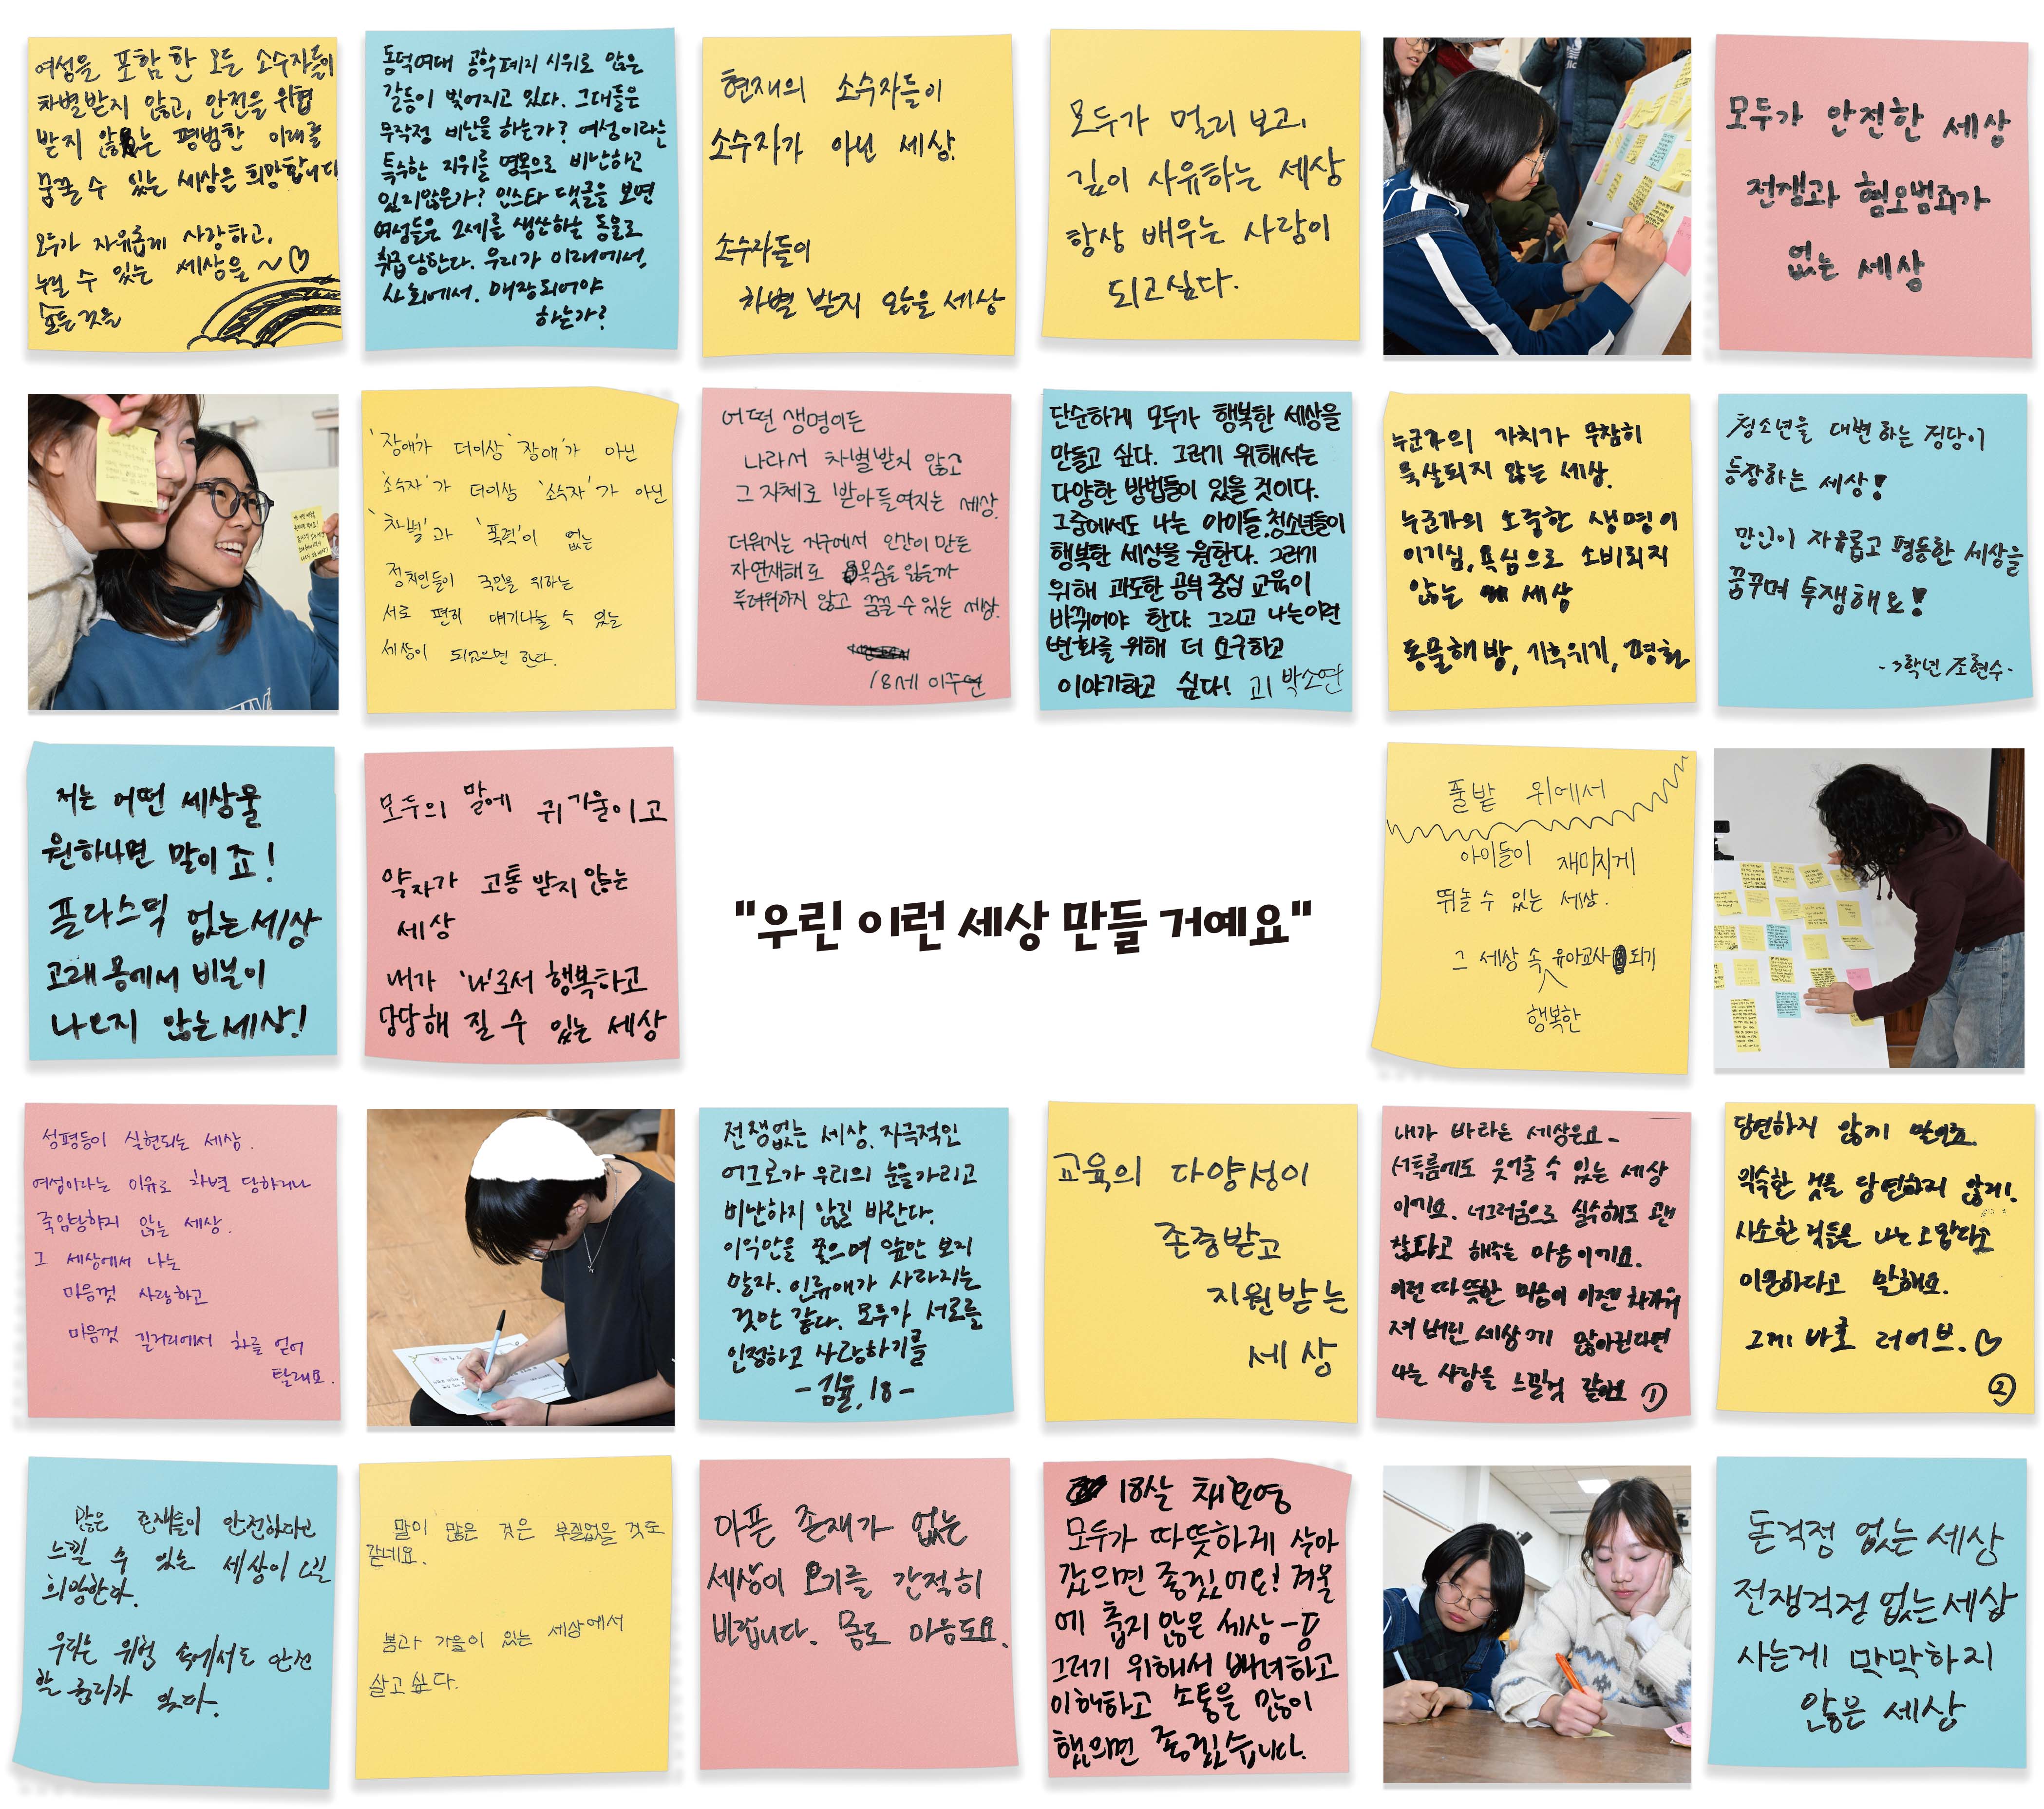 여성을 포함한 모든 소수자들이
차별받지 않고, 안전을 위협
받지 않는 평범한 미래를
꿈꿀 수 있는 세상을 희망합니다
모두가 자유롭게 사랑하고,
누릴 수 있는 세상을~♡
모든 것을
동덕여대 공학폐지 시위로 많은
갈등이 빚어지고 있다. 그대들은
무작정 비난을 하는가? 여성이라는
특수한 지위를 명목으로 비난하고
있지않은가? 인스타 댓글을 보면
여성들은 2세를 생산하는 동물로
취급당한다. 우리가 미래에서,
사회에서. 매장되어야
하는가?
현재의 소수자들이
소수자가 아닌 세상.
소수자들이
차별 받지 않을 세상
모두가 멀리 보고,
깊이 사유하는 세상
항상 배우는 사람이
되고싶다.
모두가 안전한 세상
전쟁과 혐오범죄가
없는 세상
'장애'가 더이상 '장애'가 아닌
'소수자'가 더이상 '소수자'가 아닌
'차별'과 '폭력'이 없는
정치인들이 국민을 위하는
서로 편히 얘기나눌 수 있는
세상이 되었으면 한다.
어떤 생명이든
나라서 차별받지 않고
그 자체로 받아들여지는 세상.
더워지는 지구에서 인간이 만든
자연재해로 목숨을 잃을까
두려워하지 않고 꿈꿀 수 있는 세상.
18세 이주연
단순하게 모두가 행복한 세상을
만들고 싶다. 그러기 위해서는
다양한 방법들이 있을 것이다.
그중에서도 나는 아이들,청소년들이
행복한 세상을 원한다. 그러기
위해 과도한 공부 중심 교육이
바뀌어야 한다. 그리고 나는 이런
변화를 위해 더 요구하고
이야기하고 싶다! 고1 박소연
누군가의 가치가 무참히
묵살되지 않는 세상.
누군가의 소중한 생명이
이기심,욕심으로 소비되지
않는 세상
동물해방, 기후위기, 평화
청소년을 대변하는 정당이
등장하는 세상!
만인이 자유롭고 평등한 세상을
꿈꾸며 투쟁해요!
-3학년/조현수-
저는 어떤 세상을
원하냐면 말이죠!
플라스틱 없는세상
고래 몸에서 비닐이
나오지 않는세상!
모두의 말에 귀 기울이고
약자가 고통 받지 않는
세상
내가 '나'로서 행복하고
당당해 질 수 있는 세상
"우린 이런 세상 만들 거예요"
풀밭 위에서
아이들이 재미지게
뛰놀 수 있는 세상.
그 세상 속 유아교사 되기
행복한
성평등이 실현되는 세상.
여성이라는 이유로 차별 당하거나
죽임당하지 않는 세상.
그 세상에서 나는
마음껏 사랑하고
마음껏 길거리에서 차를 얻어
탈래요.
전쟁없는 세상. 자극적인
어그로가 우리의 눈을가리고
비난하지 않길 바란다.
이익만을 쫓으며 앞만 보지
말자. 인류애가 사라지는
것만 같다. 모두가 서로를
인정하고 사랑하기를
-김율, 18-
교육의 다양성이
존중받고
지원받는
세상
내가 바라는 세상은요-
서툶에도 웃어줄 수 있는 세상
이기요. 너그러움으로 실수해도 괜
찮다고 해주는 마음이기요.
이런 따뜻한 마음이 이젠 차가워
져 버린 세상에게 많아진다면
나는 사랑을 느낄것 같아요 ①
당연하지 않게 말이죠.
익숙한 것을 당연하지 않게!
사소한 것들을 나는 고맙다고
미안하다고 말해요.
그게 바로 러어브.♡
②
많은 존재들이 안전하다고
느낄 수 있는 세상이 되길
희망한다.
우리는 위험 속에서도 안전
할 권리가 있다.
말이 많은 것은 부질없을 것도
같네요.
봄과 가을이 있는 세상에서
살고싶다.
아픈 존재가 없는
세상이 오기를 간절히
바랍니다. 몸도 마음도요.
18살 채요영
모두가 따뜻하게 살아
갔으면 좋겠어요! 겨울
에 춥지 않은 세상-용
그러기 위해서 배려하고
이해하고 소통을 많이
했으면 좋겠습니다.
돈걱정 없는 세상
전쟁걱정 없는세상
사는게 막막하지
않은 세상